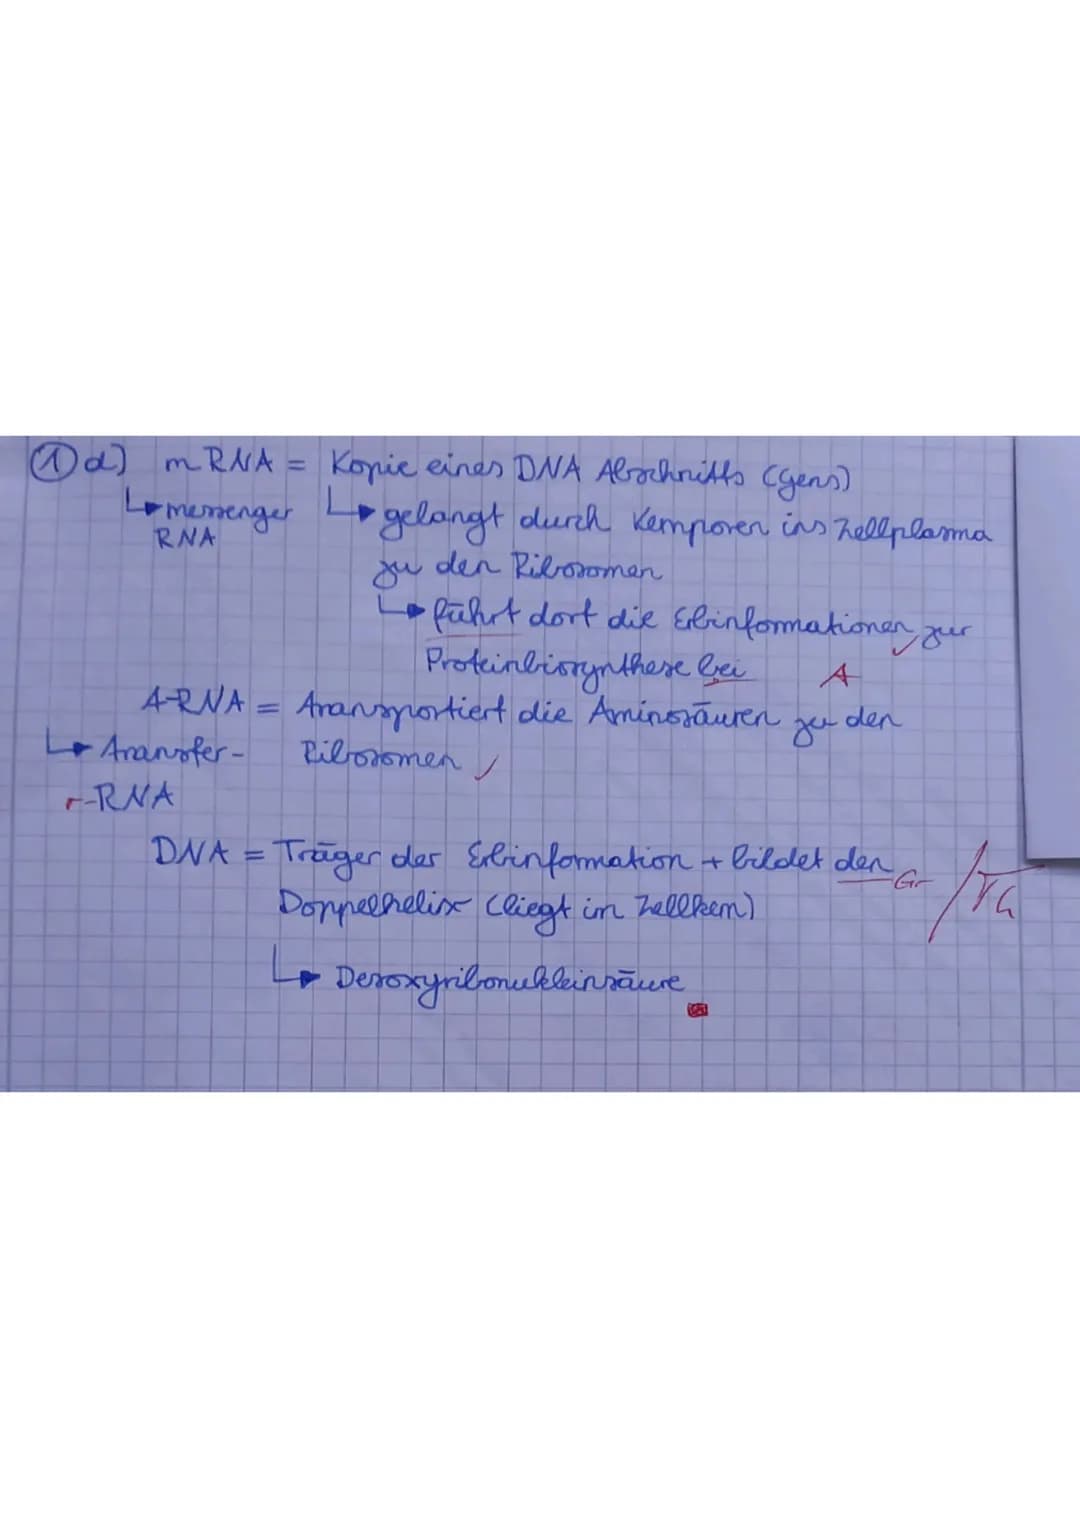 ① d) mRNA = Kopie eines DNA Abschnitts (Gens)
↳ messenger RNA ↳ gelangt durch Kernporen ins Zellplasma
zu den Ribosomen
↳ führt dort die Erbinformationen ✓ zur
Proteinbiosynthese bei A
t-RNA = Transportiert die Aminosäuren zu den
↳ Transfer- Ribosomen ✓
r-RNA
DNA = Träger der Erbinformation + bildet den Gr
Doppelhelix (liegt im Zellkern)
↳ Desoxyribonukleinsäure